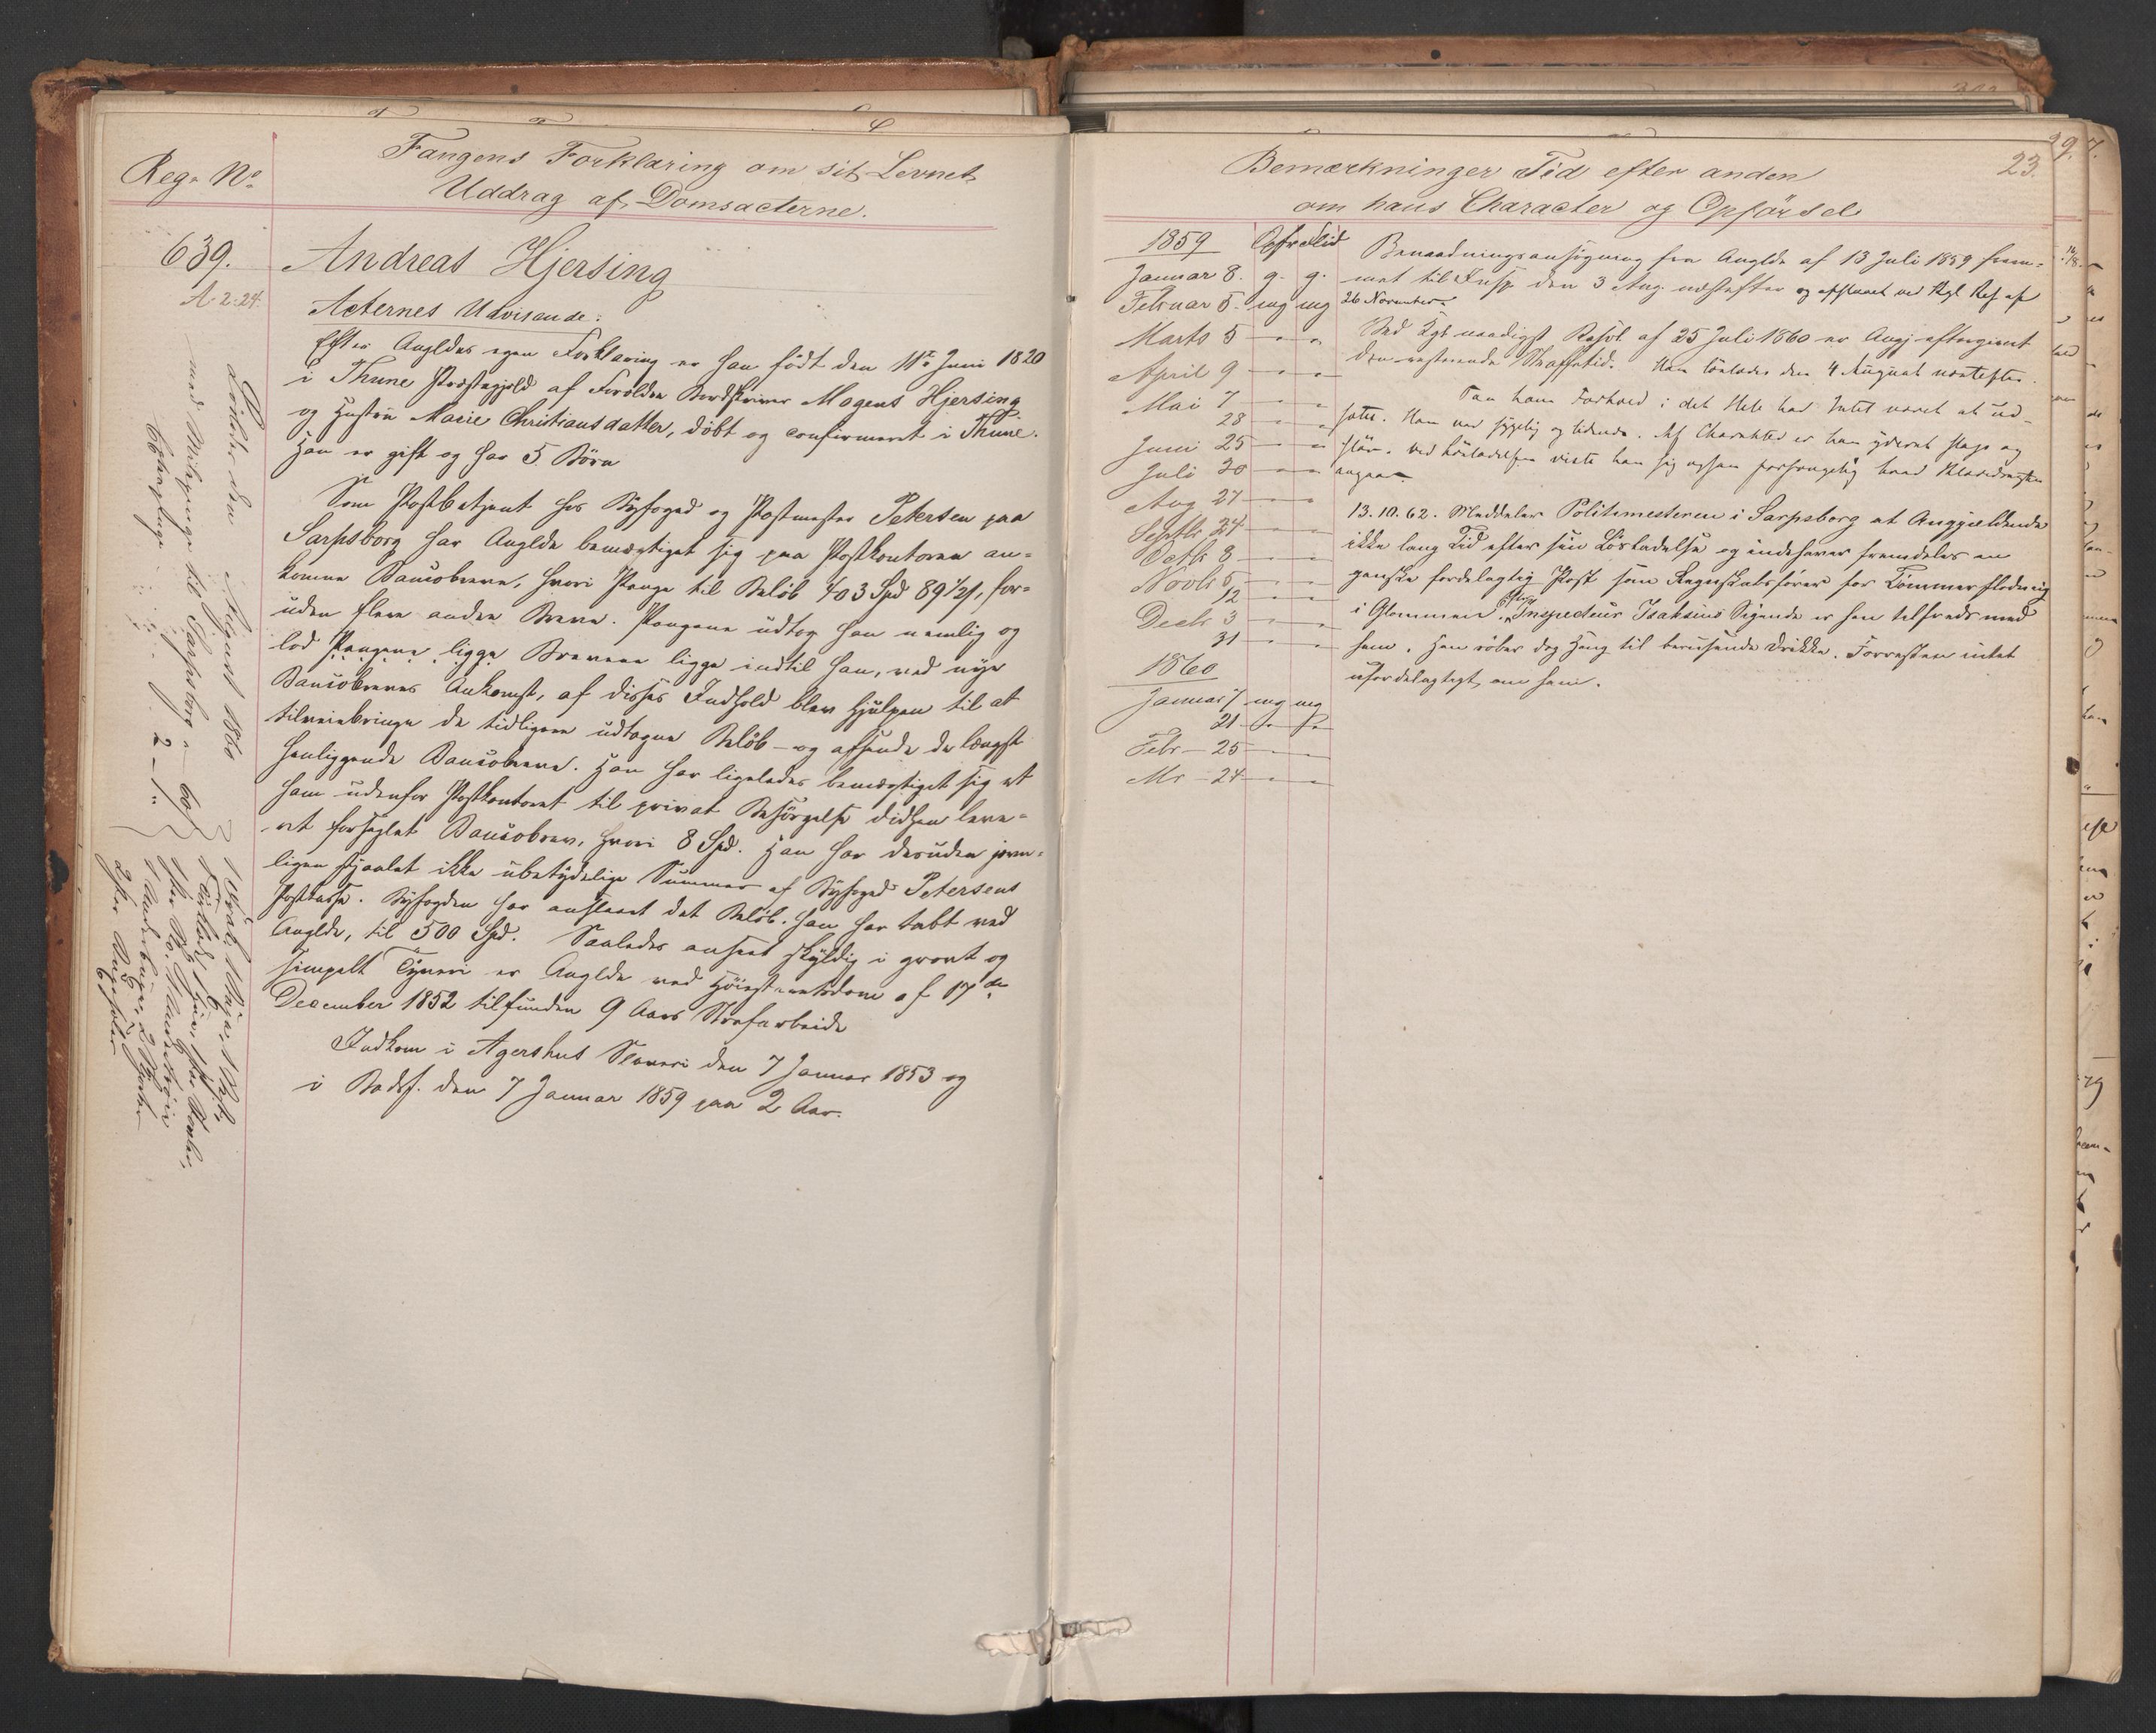 Reg. No.
Fangens Forklaring om sit Levnet,
Uddrag af Domsacterne.
639.
A 2.24.
Andreas Hjersing
Acternes Udvisende:
Efter Anglds egen Forklaring er han födt den 11te Juni 1820
i Thune Præstegjeld af Forældre Mogens Hjersing
og Hustru Marie Christiansdatter, döbt og confirmeret i Thune.
Han er gift og har 5 Börn
Som Postbetjent hos Byfoged og Postmester Petersen paa
Sarpsborg har Anglde bemægtiget sig paa Postkontoret an-
komne Bancobreve, hvori Penge til Belöb 403 Spd 89½ s, for-
uden flere andre Breve. Pengene udtog han nemlig og
lod Pengene ligge Brevene ligge indtil han, ved nye
Bancobreves Ankomst, af disses Indhold blev hjulpen til at
tilveiebringe de tidligere udtagne Belöb - og afsende de længst
henliggende Bancobreve. Han har ligeledes bemægtiget sig et
ham udenfor Postkontoret til privat Besörgelse didhen leve-
ret forseglet Bancobrev, hvori 8 Spd. Han har desuden jevn-
ligen stjaalet ikke ubetydelige Summer af Byfoged Petersens
Postkasse. Byfogden har anslaaet det Belöb han har tabt ved
Anglde, til 500 Spd. Saaledes anseet skyldig i grovt og
simpelt Tyveri er Anglde ved Höiesteretsdom af 17de
December 1852 tilfunden 9 Aars Strafarbeide
Indkom i Agershus Slaveri den 7 Januar 1853 og
i Bodsf. den 7 Januar 1859 paa 2 Aar.
Löslades den 4 August 1860
med Milepenge til Sarpsborg - 60 s
2 - 1 "
Bemærkninger Tid efter anden
om hans Character og Opförsel
23.
1859 Opf. Flid
Januar 8. g. g.
Februar 5. mg mg
Marts 5 - " "
April 9 - " "
Mai 7 - " "
28 - " "
Juni 25 - " "
Juli 30 - " "
Aug 27 - " "
Septbr 24 - " "
Octb 8 - " "
Novb 5 - " "
12 - " "
Decb 3 - " "
31 - " "
1860
Januar 7 mg mg
21 - " "
Febr - 25 - " "
Mr - 24 - " "
Benaadningsansögning fra Anglde af 13 Juli 1859 frem-
met til Insp den 3 Aug. næstefter og afslaaet ved Kgl Res af
26 November
Ved Kgl naadigst Resol. af 25 Juli 1860 er Angj eftergivet
den resterende Straffetid. Han löslades den 4 August næstefter.
Paa hans Forhold i det Hele har Intet været at ud-
sætte. Han var sygelig og lidende. Af Charakter er han yderst slap og
slöv. Ved Lösladelsen viste han sig
13.10.62. Meddeler Politimesteren i Sarpsborg at Anggjeldende
ikke lang Tid efter sin Lösladelse og indehaver fremdeles en
ganske fordelagtig Post som Regnskabsförer for Tömmerflödning
i Glommen. Efter Inspecteur Isaksens Sigende er han tilfreds med
ham. Han röber dog Hang til berusende Drikke. Forresten intet
ufordelagtigt om ham.